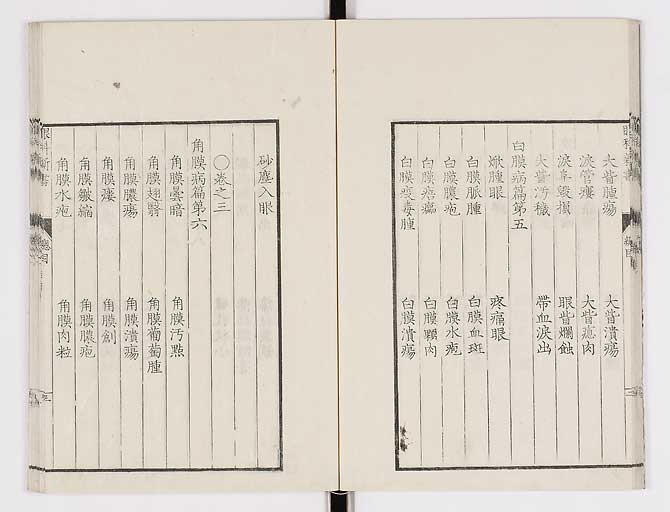 大眥腫瘍 大眥潰瘍
淚管瘻 大眥瘜肉
淚阜毀損 眼眥爛蝕
大眥汚穢 帶血淚出
白膜病篇第五
焮腫眼 疼痛眼
白膜脈腫 白膜血斑
白膜膿疱 白膜水疱
白膜 白膜 肉
白膜痘毒腫 白膜潰瘍
砂塵入眼
○卷之三
角膜病篇第六
角膜曇暗 角膜汚點
角膜翅翳 角膜葡萄腫
角膜膿瘍 角膜潰瘍
角膜瘻 角膜創
角膜皺縮 角膜膿疱
角膜水疱 角膜肉粒
眼科新書 總目